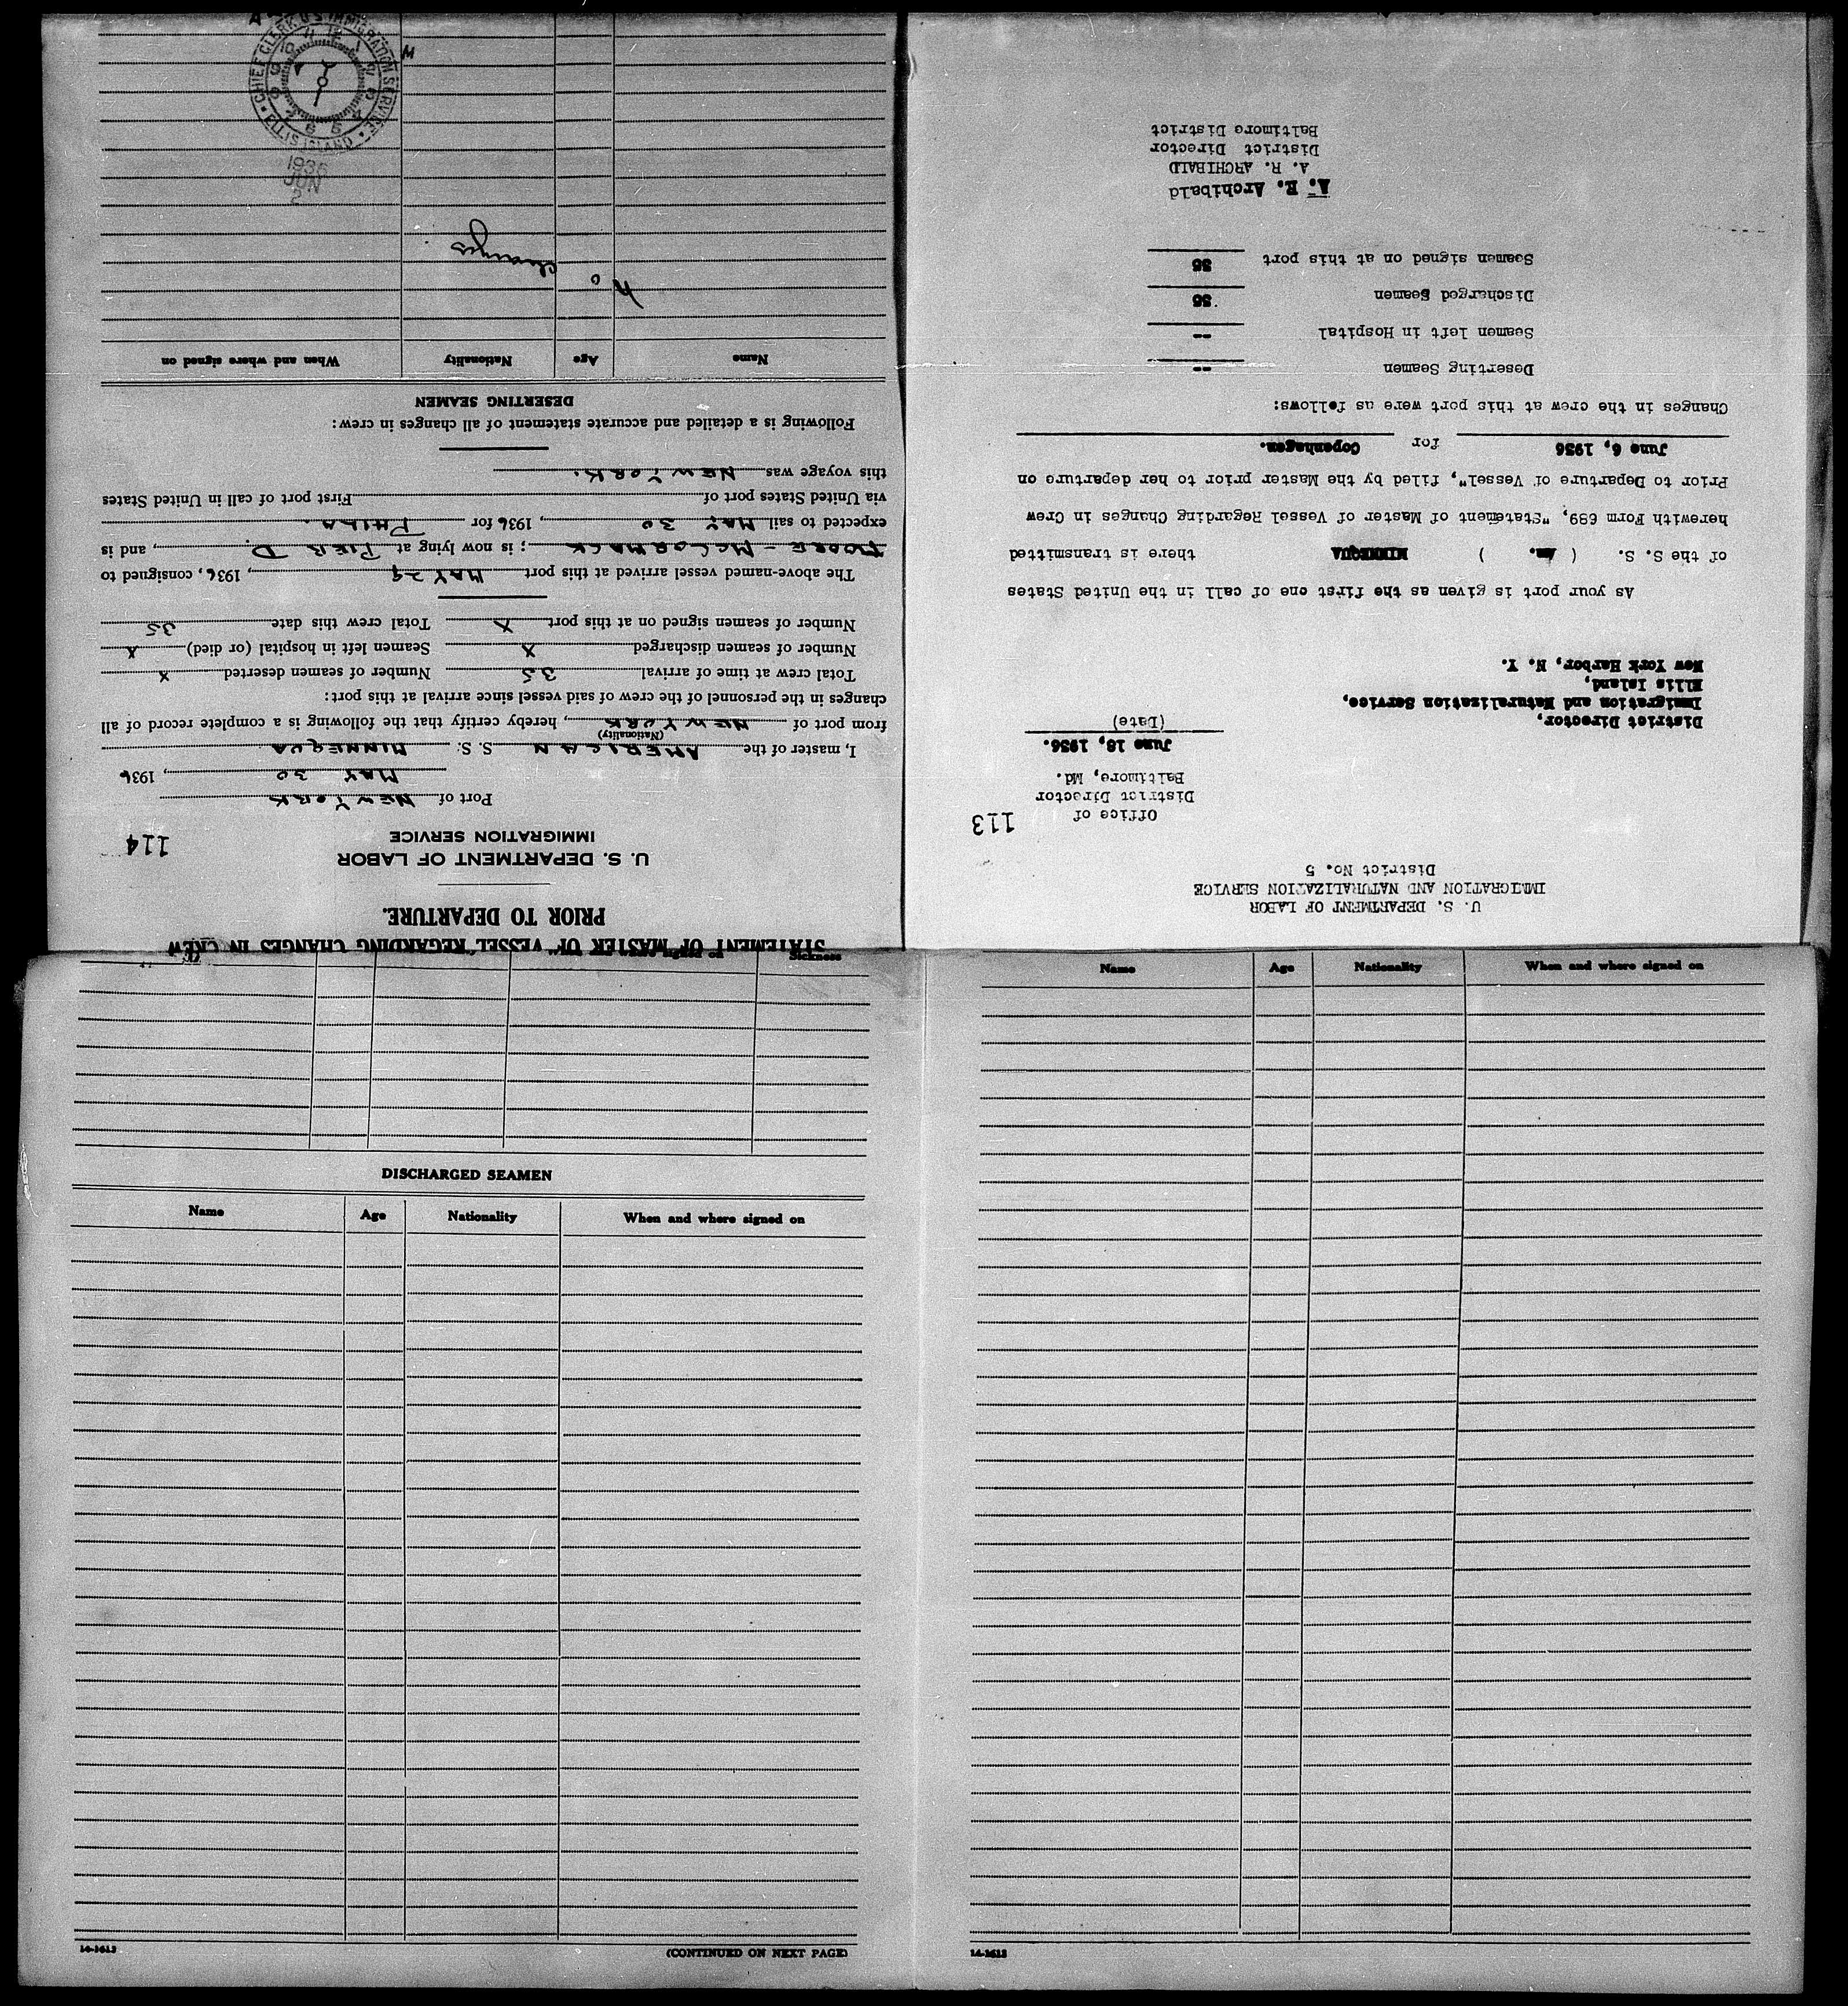 STATEMENT OF MASTER OF VESSEL REGARDING CHANGES IN CREW
PRIOR TO DEPARTURE.
U. S. DEPARTMENT OF LABOR
IMMIGRATION SERVICE
114
Port of NEW YORK
MAY 30, 1936
I, master of the AMERICAN S. S. MINNEQUA
(Nationality)
from port of NEW YORK, hereby certify that the following is a complete record of all
changes in the personnel of the crew of said vessel since arrival at this port:
Total crew at time of arrival 35 Number of seamen deserted X
Number of seamen discharged X Seamen left in hospital (or died) X
Number of seamen signed on at this port X Total crew this date 35
The above-named vessel arrived at this port MAY 29, 1936, consigned to
MOORE - McCORMACK; is now lying at PIER D., and is
expected to sail MAY 30, 1936 for PHILA.
via United States port of First port of call in United States
this voyage was NEW YORK.
Following is a detailed and accurate statement of all changes in crew:
DESERTING SEAMEN
Name Age Nationality When and where signed on
No changes
CHIEF CLERK U S IMMIGRATION SERVICE
ELLIS ISLAND
1936
JUN
2
U. S. DEPARTMENT OF LABOR
IMMIGRATION AND NATURALIZATION SERVICE
District No. 5
113
Office of
District Director
Baltimore, Md.
June 18, 1936.
(Date)
District Director,
Immigration and Naturalization Service,
Ellis Island,
New York Harbor, N. Y.
As your port is given as the first one of call in the United States
of the S. S. ( Am. ) MINNEQUA there is transmitted
herewith Form 689, "Statement of Master of Vessel Regarding Changes in Crew
Prior to Departure of Vessel", filed by the Master prior to her departure on
June 6, 1936 for Copenhagen.
Changes in the crew at this port were as follows:
Deserting Seamen --
Seamen left in Hospital --
Discharged Seamen 36
Seamen signed on at this port 36
A. R. Archibald
A. R. ARCHIBALD
District Director
Baltimore District
Sickness
DISCHARGED SEAMEN
Name Age Nationality When and where signed on
14-1613
(CONTINUED ON NEXT PAGE)
Name Age Nationality When and where signed on
14-1613